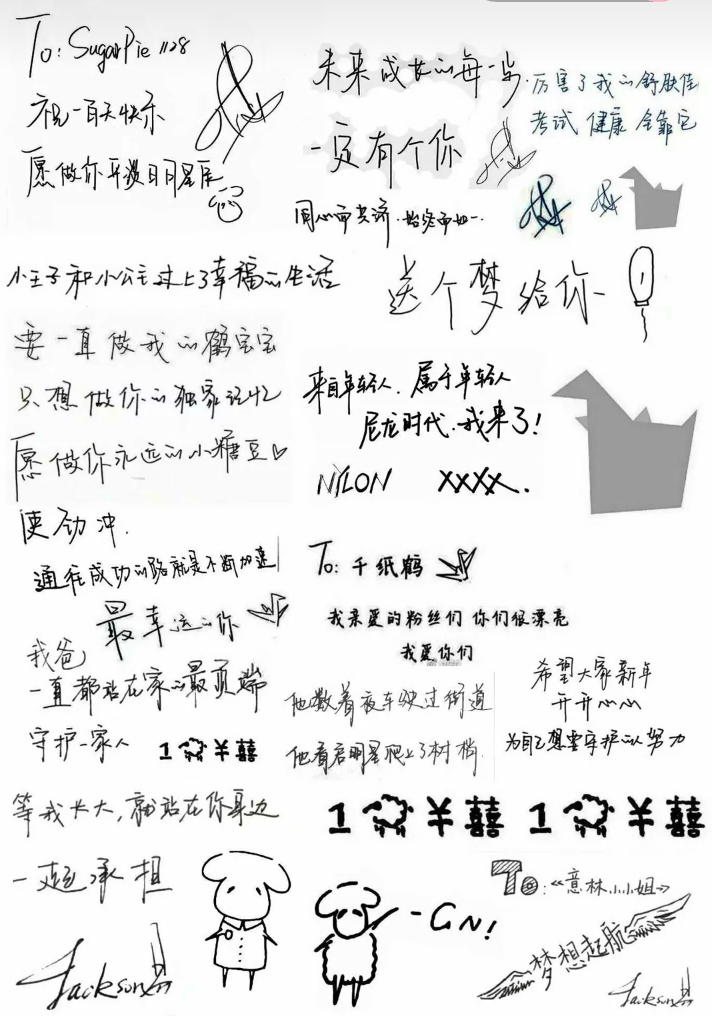 To: SugarPie 1128
祝一百天快乐
愿做你平淡日月星辰
未来成长的每一步
一定有个你
同心而共济.始终而如一.
厉害了我的舒肤佳
考试 健康 全靠它
小王子和小公主过上了幸福的生活
送个梦给你
要一直做我的鹤宝宝
只想做你的独家记忆
愿做你永远的小糖豆♡
来自年轻人.属于年轻人
尼龙时代.我来了!
NYLON XXXX.
使劲冲.
通往成功的路就是不断加速
最幸运的你
To: 千纸鹤
我亲爱的粉丝们 你们很漂亮
我爱你们
我爸
一直都站在家的最顶端
守护一家人
1 羊 囍
他散着夜车驶过街道
他看启明星爬上了树梢
希望大家新年
开开心心
为自己想要守护的努力
等我长大,就站在你身边
一起承担
1 羊 囍
1 羊 囍
Jackson
-GN!
To:《意林小小姐》
梦想起航
Jackson